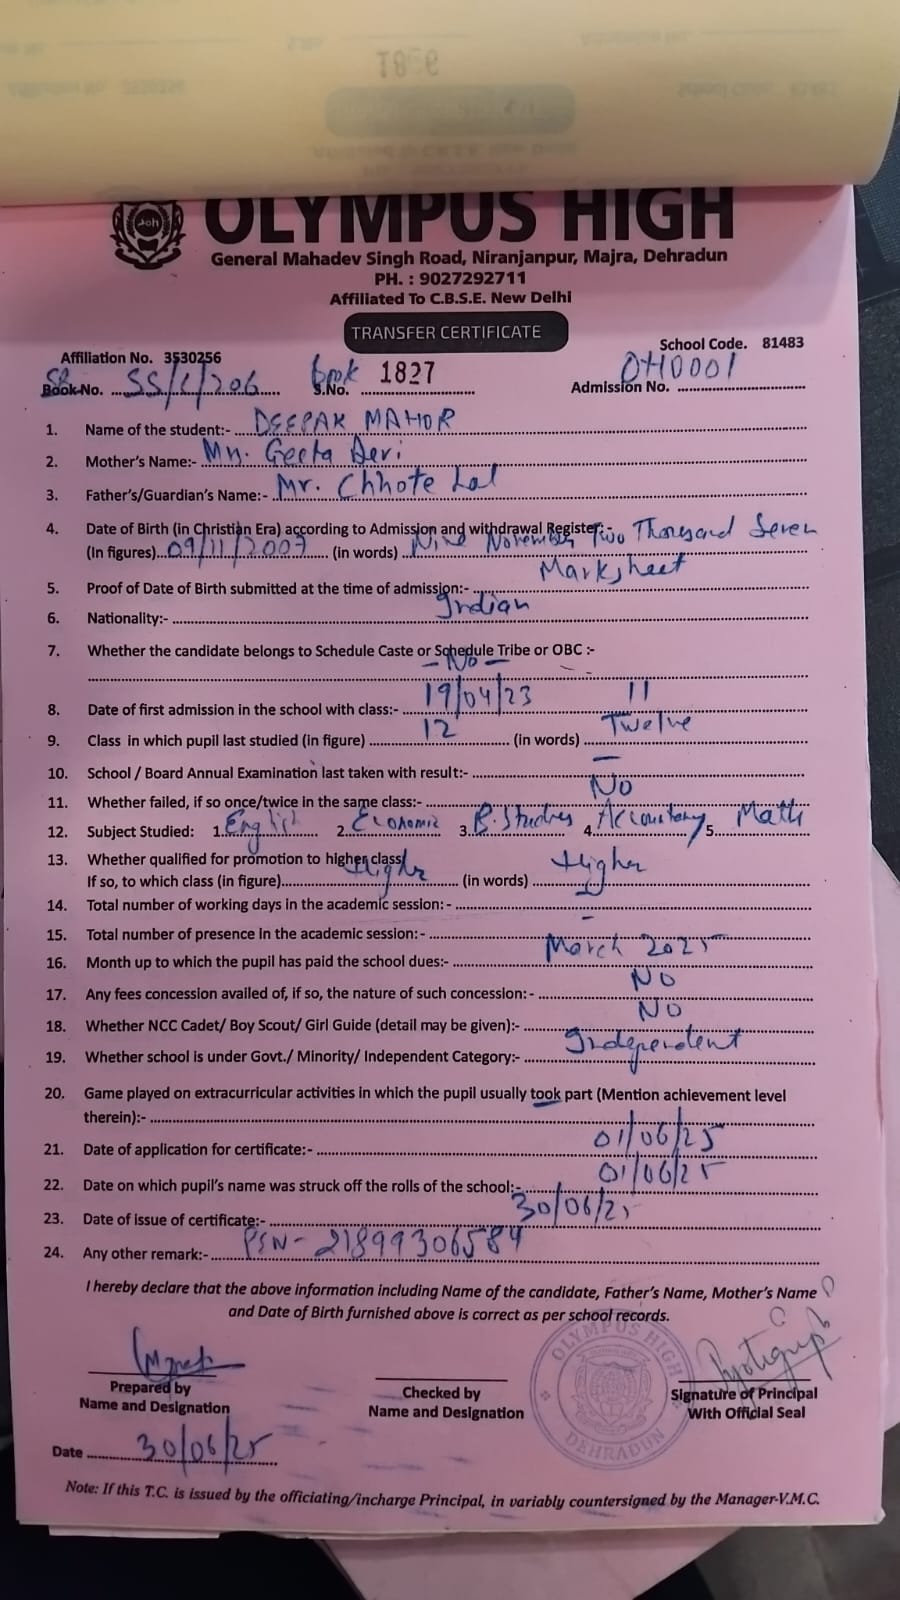 OLYMPUS HIGH
General Mahadev Singh Road, Niranjanpur, Majra, Dehradun
PH. : 9027292711
Affiliated To C.B.S.E. New Delhi
TRANSFER CERTIFICATE
Affiliation No. 3530256 School Code. 81483
SR Book No. SS/C/206 Book S.No. 1827 Admission No. OH0001
1. Name of the student:- DEEPAK MAHOR
2. Mother's Name:- Mrs. Geeta Devi
3. Father's/Guardian's Name:- Mr. Chhote Lal
4. Date of Birth (in Christian Era) according to Admission and withdrawal Register:-
(In figures) 09/11/2007 (in words) Nine November Two Thousand Seven
5. Proof of Date of Birth submitted at the time of admission:- Marksheet
6. Nationality:- Indian
7. Whether the candidate belongs to Schedule Caste or Schedule Tribe or OBC :-
- No -
8. Date of first admission in the school with class:- 19/04/23 11
9. Class in which pupil last studied (in figure) 12 (in words) Twelve
10. School / Board Annual Examination last taken with result:- -
11. Whether failed, if so once/twice in the same class:- No
12. Subject Studied: 1. English 2. Economic 3. B.Studies 4. Accountany 5. Math
13. Whether qualified for promotion to higher class/
If so, to which class (in figure) Higher (in words) Higher
14. Total number of working days in the academic session:- -
15. Total number of presence in the academic session:- -
16. Month up to which the pupil has paid the school dues:- March 2025
17. Any fees concession availed of, if so, the nature of such concession:- NO
18. Whether NCC Cadet/ Boy Scout/ Girl Guide (detail may be given):- NO
19. Whether school is under Govt./ Minority/ Independent Category:- Independent
20. Game played on extracurricular activities in which the pupil usually took part (Mention achievement level
therein):-
21. Date of application for certificate:- 01/06/25
22. Date on which pupil's name was struck off the rolls of the school:- 01/06/25
23. Date of issue of certificate:- 30/06/25
24. Any other remark:- PSN- 21899306584
I hereby declare that the above information including Name of the candidate, Father's Name, Mother's Name
and Date of Birth furnished above is correct as per school records.
OLYMPUS HIGH
DEHRADUN
Prepared by Checked by Signature of Principal
Name and Designation Name and Designation With Official Seal
Date 30/06/25
Note: If this T.C. is issued by the officiating/incharge Principal, in variably countersigned by the Manager-V.M.C.